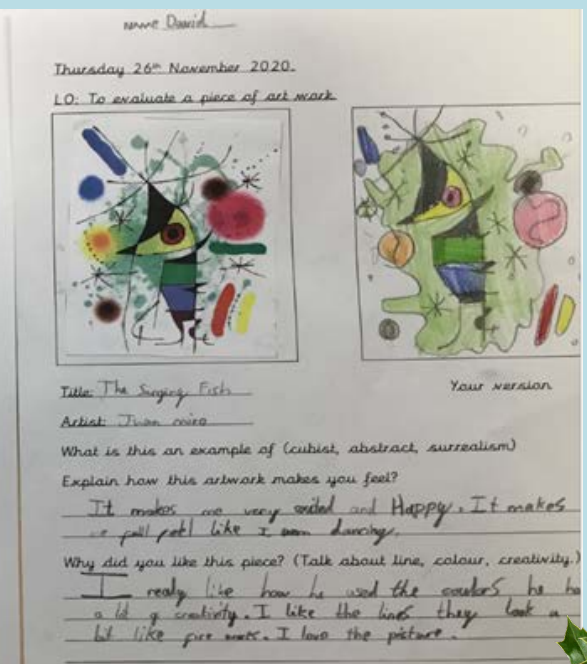 name David
Thursday 26th November 2020.
LO: To evaluate a piece of art work
Title: The Singing Fish
Your version
Artist: Juan miro
What is this an example of (cubist, abstract, surrealism)
Explain how this artwork makes you feel?
It makes me very exited and Happy. It makes
like I am dancing.
Why did you like this piece? (Talk about line, colour, creativity.)
I realy like how he used the coulors he
a lot of creativity. I like the lines they look a
bit like fire works. I love the picture.